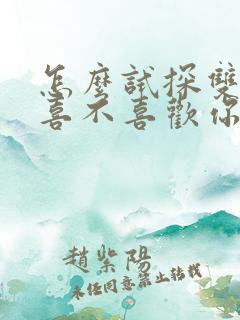 怎麼試探雙
喜不喜歡你
趙紫陽
未任同意禁止转载